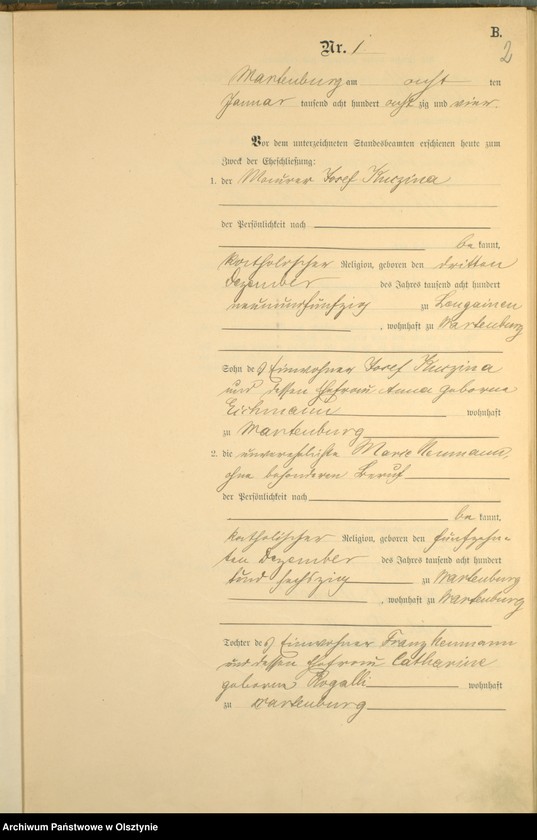 B.
2
Nr. 1
Wartenburg am acht ten
Januar tausend acht hundert acht zig und vier.
Vor dem unterzeichneten Standesbeamten erschienen heute zum
Zweck der Eheschließung:
1. der Maurer Josef Kuczina
der Persönlichkeit nach
be kannt,
katholischer Religion, geboren den dritten
Dezember des Jahres tausend acht hundert
neunundfünfzig zu Lengainen
, wohnhaft zu Wartenburg
Sohn des Einwohner Josef Kuczina
und dessen Ehefrau Anna geborne
Eichmann wohnhaft
zu Wartenburg
2. die unverehlichte Marie Neumann,
ohne besonderen Beruf
der Persönlichkeit nach
be kannt,
katholischer Religion, geboren den fünfzehn-
ten Dezember des Jahres tausend acht hundert
und sechszig zu Wartenburg
, wohnhaft zu Wartenburg
Tochter des Einwohner Franz Neumann
und dessen Ehefrau Catharine
geborne Rogalli wohnhaft
zu Wartenburg
Archiwum Państwowe w Olsztynie